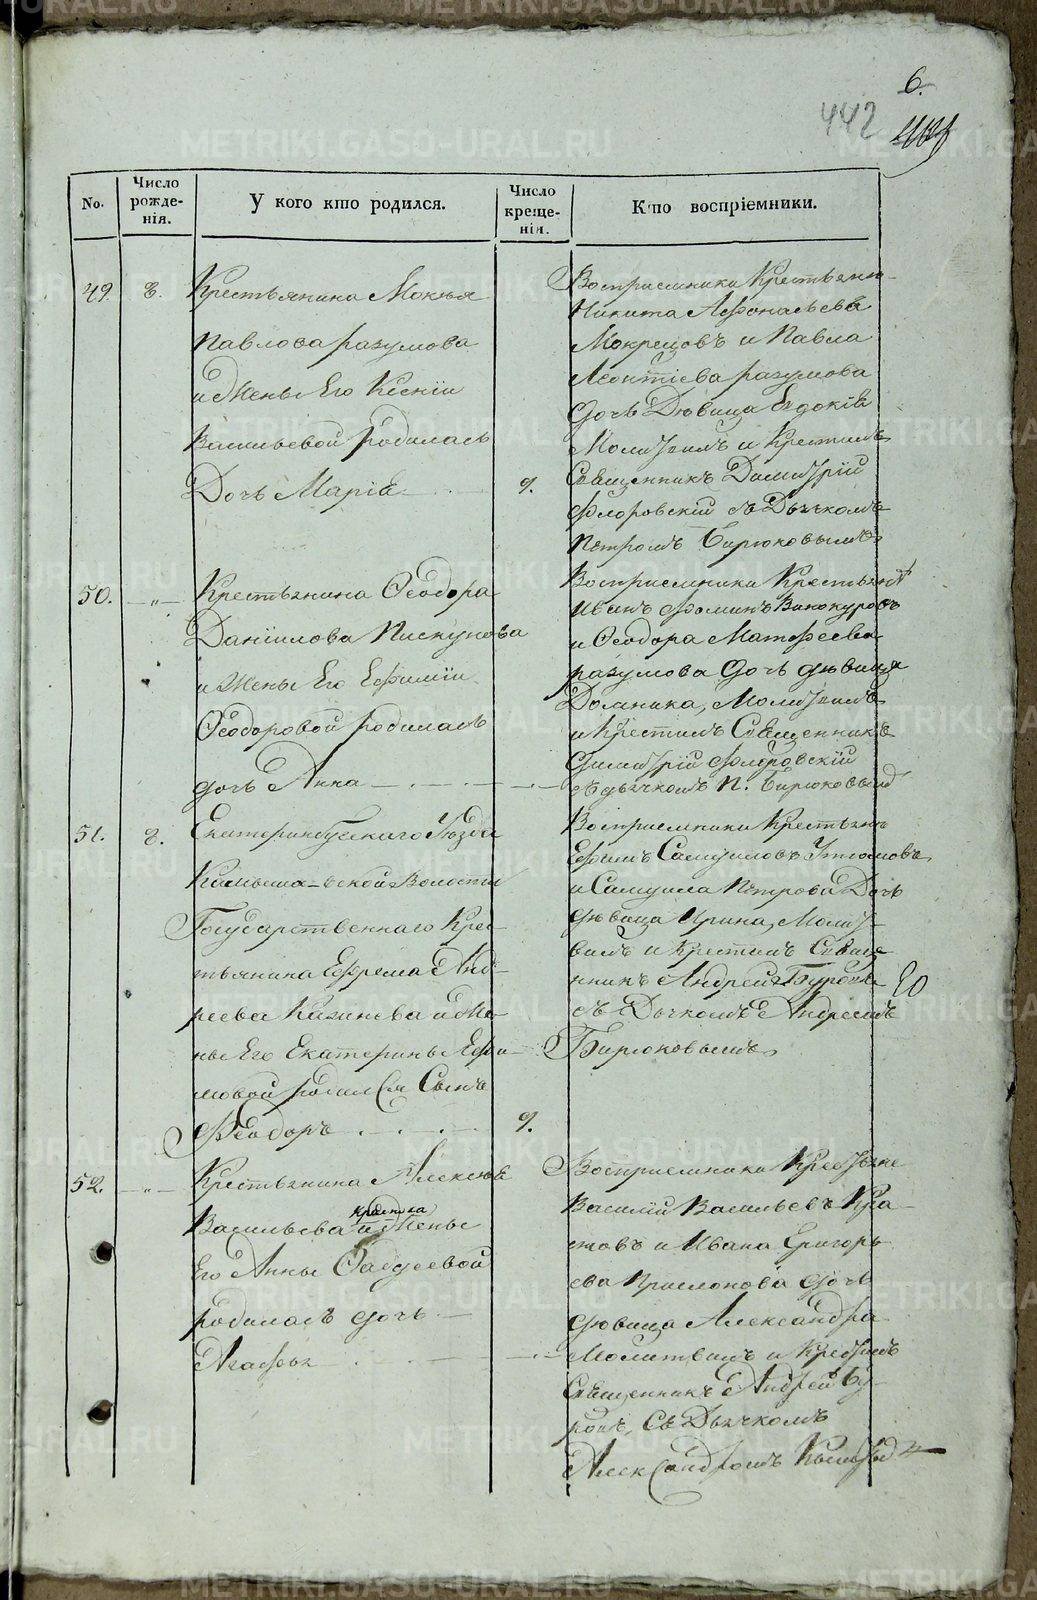 6.
442
No.
Число рожде-нія.
У кого кто родился.
Число креще-нія.
Кто воспріемники.
49.
8.
Крестьянина Мокья
Павлова разумова
и Жены Его Ксенiи
Васильевой родилась
Дочь Марiя
9.
Восприемники Крестьяне
Никита Афонасьевъ
Мокрецовъ и Павла
Леонтiева разумова
Дочь Дѣвица Евдокiя
Молитвилъ и Крестилъ
Священникъ Димитрiй
Флоровскiй съ Дьячкомъ
Петромъ Бирюковымъ
50.
—„—
Крестьянина Ѳеодора
Данiилова Пискунова
и Жены Его Ефимiи
Ѳеодоровой родилась
дочь Анна
Восприемники Крестьяне
Иванъ Фоминъ Винокуровъ
и Ѳеодора Матфеева
разумова дочь дѣвица
Домника, Молитвилъ
и Крестилъ Священникъ
Димитрiй Флоровскiй
съ дьячкомъ П. Бирюковымъ
51.
8.
Екатеринбугскаго Уѣзда
Волости
Государственнаго Крес-
тьянина Ефрема Анд-
реева и Же-
ны Его Екатерины Ефи-
мовой родился Сынъ
Феодоръ
9.
Восприемники Крестьяне
Ефимъ Самуиловъ
и Самуила Петрова Дочь
дѣвица Ирина, Молит-
вилъ и Крестилъ Свяще-
нникъ Андрей
съ Дьячкомъ Андреемъ
Бирюковымъ
52.
—„—
Крестьянина Алексѣя
Васильева и Жены
Его Анны Фадѣевой
родилась дочь
Агафья
Восприемники Крестьяне
Василiй Васильевъ
и Ивана Григорь-
ева дочь
дѣвица Александра
Молитвилъ и Крестилъ
Священникъ Андрей Бу-
ровъ, Съ Дьячкомъ
Александромъ
METRIKI.GASO-URAL.RU